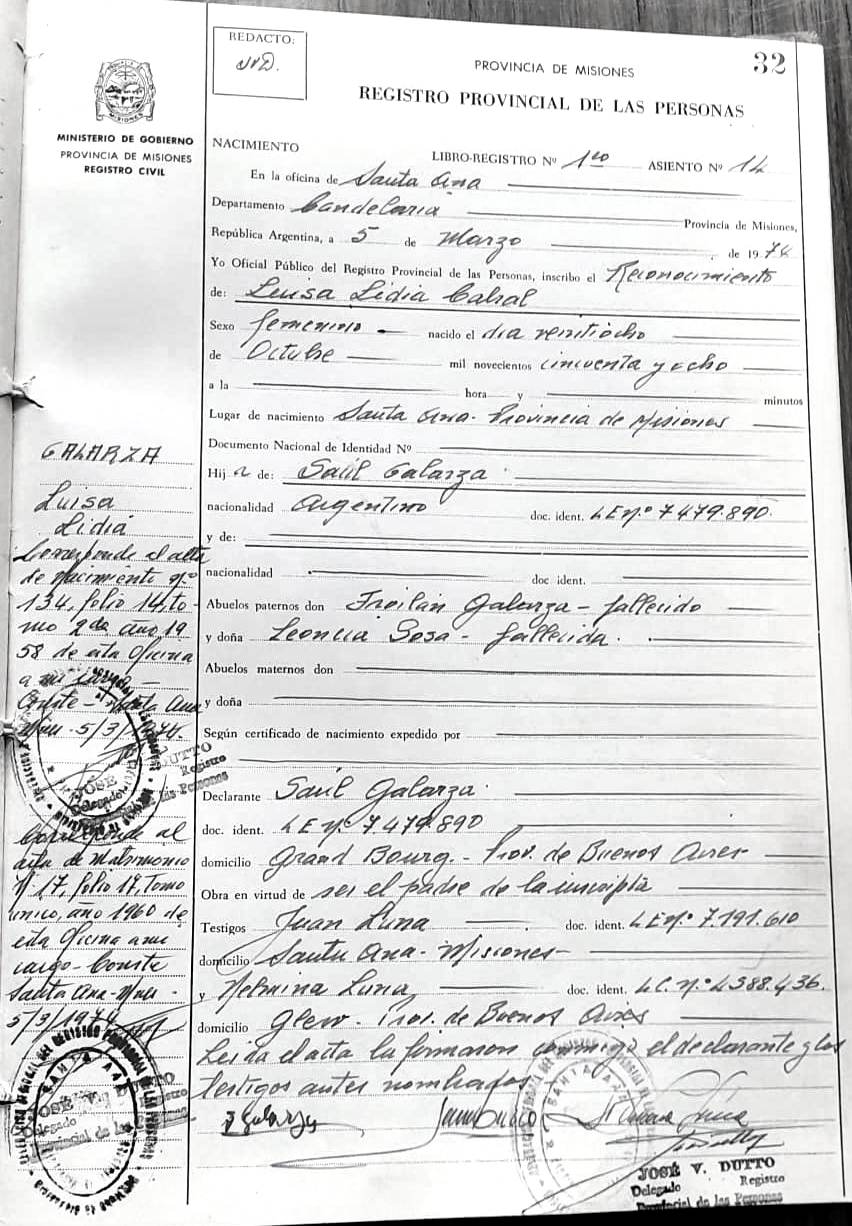 REDACTO:
32
PROVINCIA DE MISIONES
REGISTRO PROVINCIAL DE LAS PERSONAS
MINISTERIO DE GOBIERNO
PROVINCIA DE MISIONES
REGISTRO CIVIL
NACIMIENTO
LIBRO-REGISTRO Nº 1ro ASIENTO Nº 14
En la oficina de Santa Ana
Departamento Candelaria Provincia de Misiones,
República Argentina, a 5 de Marzo de 1974
Yo Oficial Público del Registro Provincial de las Personas, inscribo el Reconocimiento
de: Luisa Lidia Cabral
Sexo femenino nacido el día veintiocho
de Octubre mil novecientos cincuenta y ocho
a la hora y minutos
Lugar de nacimiento Santa Ana - Provincia de Misiones
Documento Nacional de Identidad Nº
Hija de: Saúl Galarza
nacionalidad Argentino doc. ident. LE Nº 7479.890
y de:
nacionalidad doc ident.
Abuelos paternos don Froilán Galarza - fallecido
y doña Leoncia Sosa - fallecida.
Abuelos maternos don
y doña
Según certificado de nacimiento expedido por
Declarante Saúl Galarza
doc. ident. LE Nº 7479.890
domicilio Grand Bourg - Prov. de Buenos Aires
Obra en virtud de ser el padre de la inscripta
Testigos Juan Luna doc. ident. LE Nº 7.191.610
domicilio Santa Ana - Misiones
y Nelmina Luna doc. ident. LC. Nº 4588.436.
domicilio Glew - Prov. de Buenos Aires
Leida el acta la firmaron conmigo el declarante y los
testigos antes nombrados
GALARZA
Luisa
Lidia
Corresponde el acta
de Nacimiento Nº
134, folio 14, to
mo 2do año 19
58 de esta Oficina
a mi cargo
Conste - Santa Ana
Mnes - 5/3/1974
JOSÉ DUTTO
Delegado Registro
Provincial de las Personas
Corresponde al
acta de Matrimonio
Nº 17, folio 17, Tomo
único, año 1960 de
esta Oficina a mi
cargo - Conste
Santa Ana - Mnes -
5/3/1974
JOSÉ V. DUTTO
Delegado Registro
Provincial de las Personas
SANTA ANA
JOSÉ V. DUTTO
Delegado Registro
Provincial de las Personas